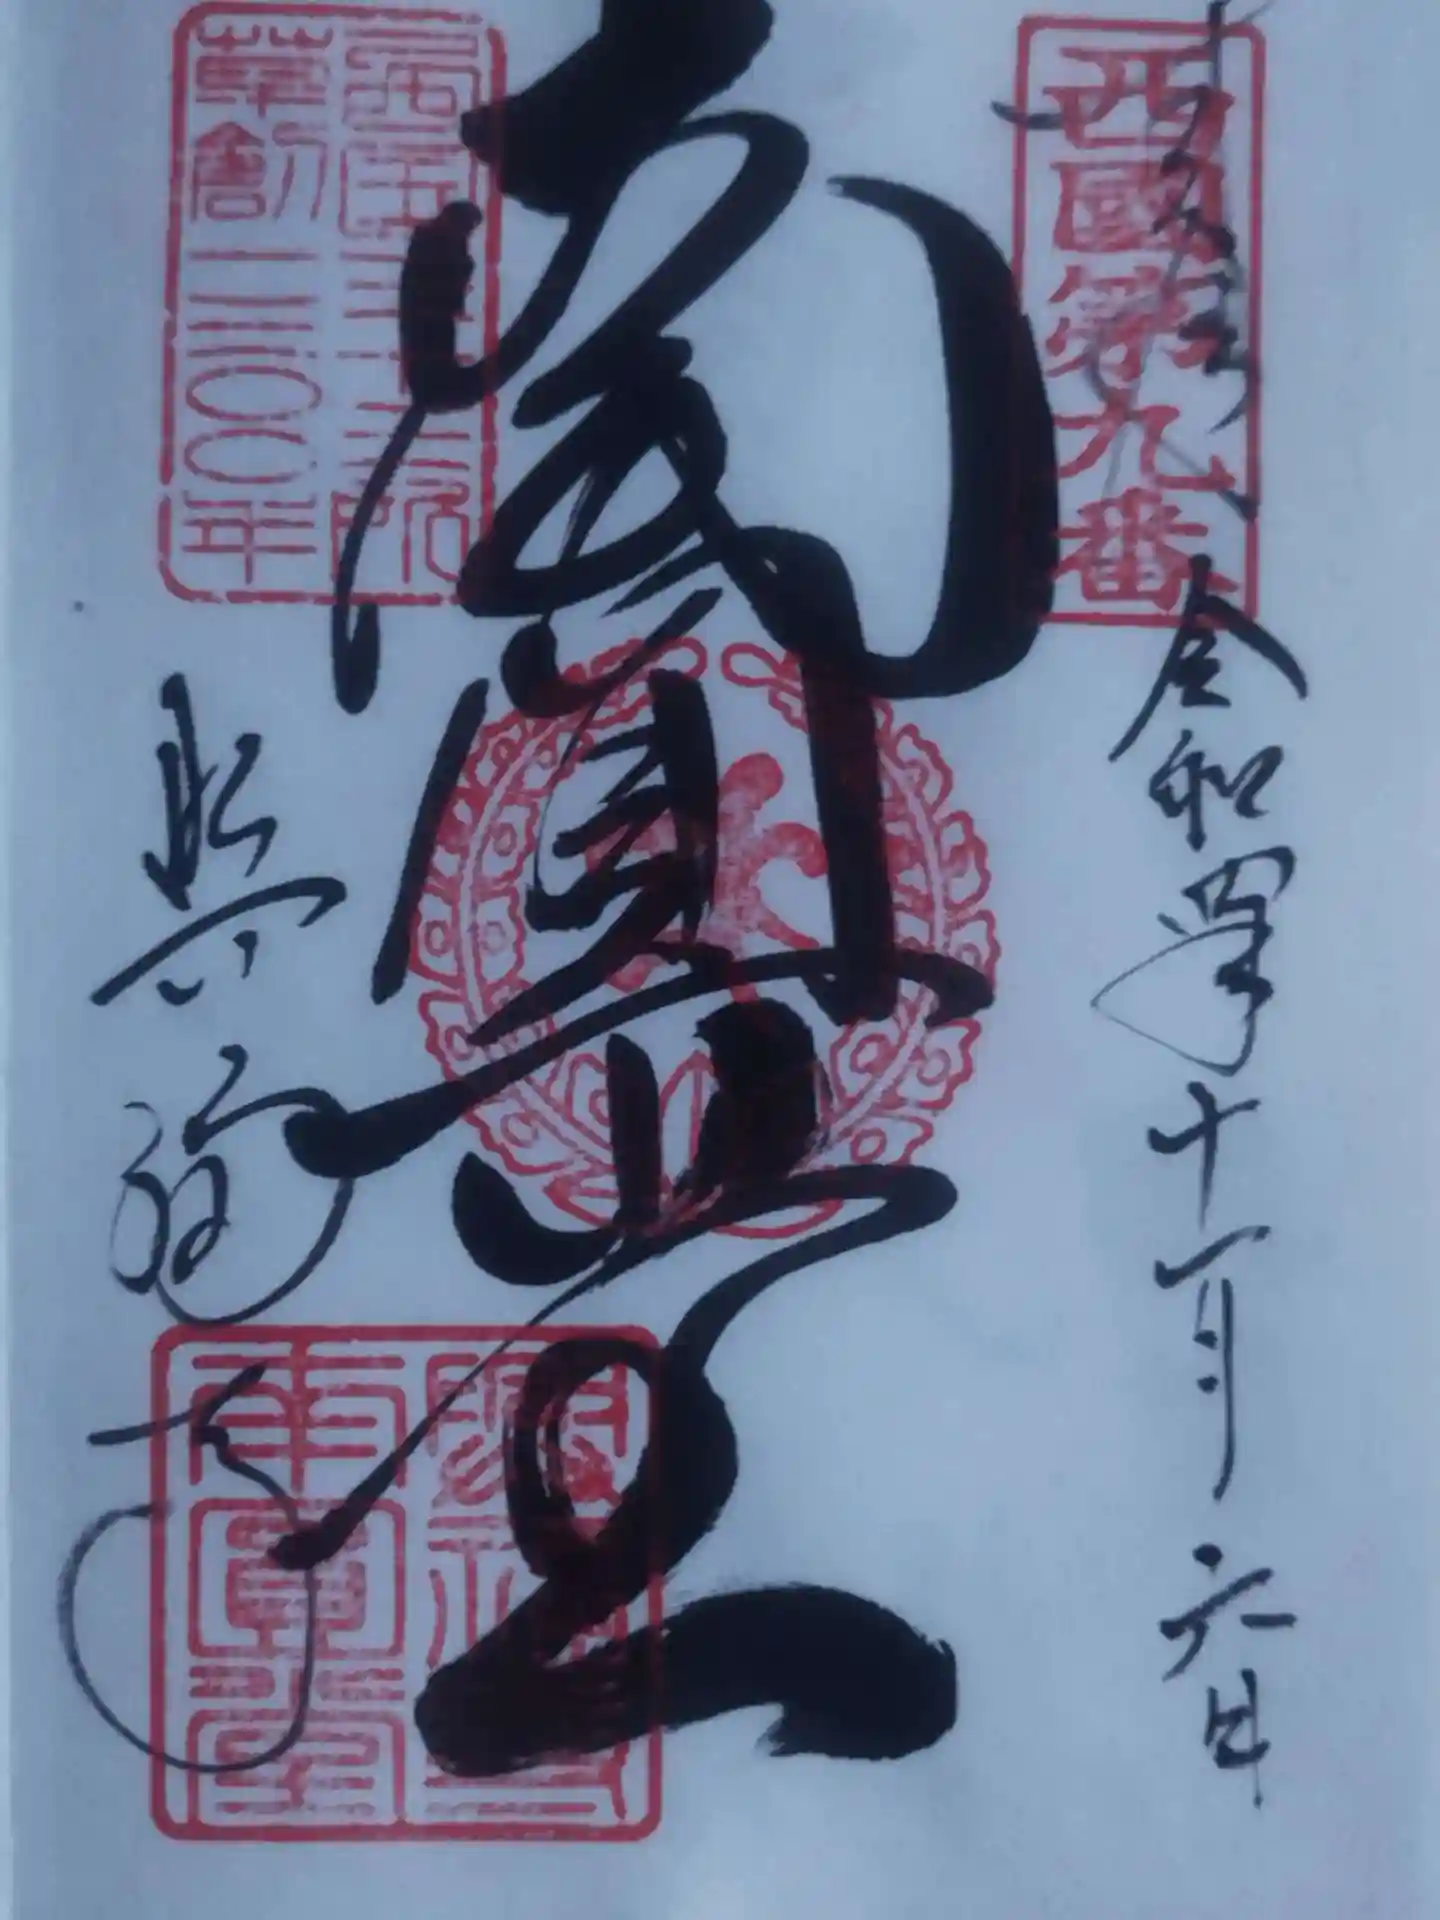 西國第九番
令和四年十一月六日
南圓堂
西国三十三所
草創一三〇〇年
興福寺
興福寺
南圓堂